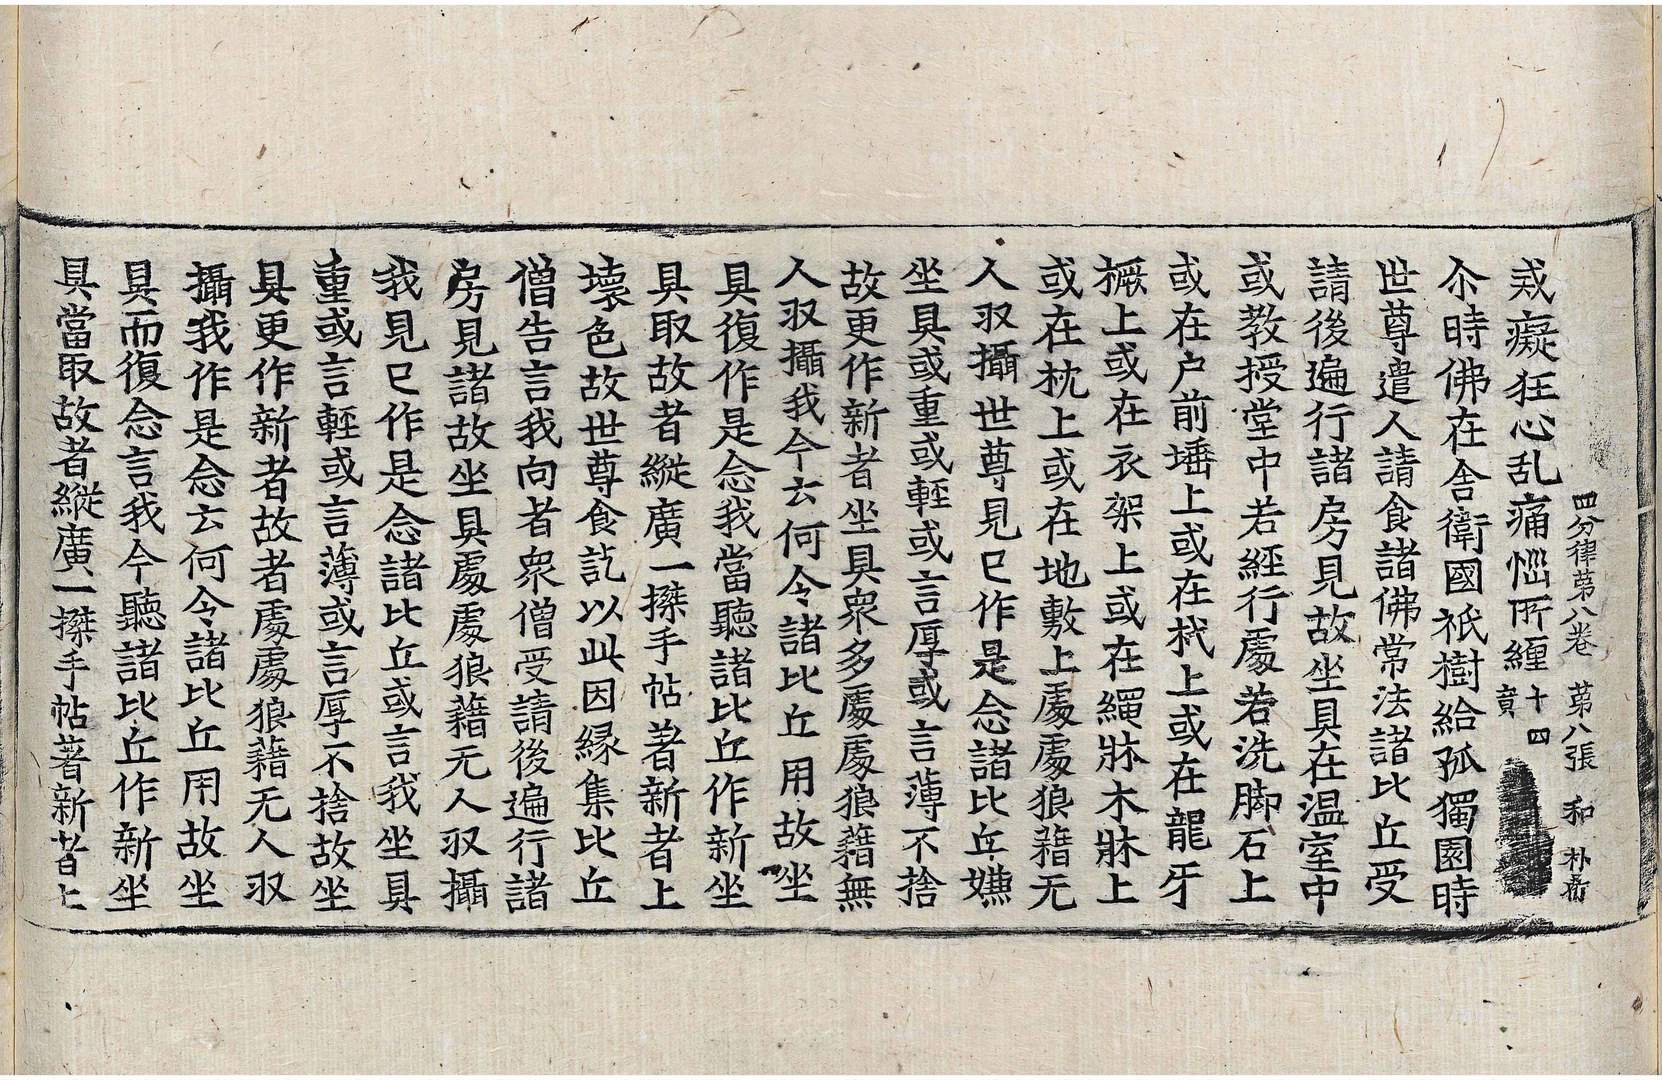 四分律苐八卷 苐八張 和 朴
戒癡狂心乱痛㥸所纏 十四 賁
尒時佛在舍衛國祇樹給孤獨園時
世尊遣人請食諸佛常法諸比丘受
請後遍行諸房見故坐具在温室中
或教授堂中若經行處若洗脚石上
或在户前墦上或在杙上或在龍牙
橛上或在衣架上或在繩牀木牀上
或在枕上或在地敷上處處狼藉无
人収攝世尊見已作是念諸比丘嫌
坐具或重或輕或言厚或言薄不捨
故更作新者坐具衆多處處狼藉無
人収攝我今云何令諸比丘用故坐
具復作是念我當聽諸比丘作新坐
具取故者縱廣一搩手帖著新者上
壞色故世尊食訖以此因緣集比丘
僧告言我向者衆僧受請後遍行諸
房見諸故坐具處處狼藉无人収攝
我見已作是念諸比丘或言我坐具
重或言輕或言薄或言厚不捨故坐
具更作新者故者處處狼藉无人収
攝我作是念云何令諸比丘用故坐
具而復念言我今聽諸比丘作新坐
具當取故者縱廣一搩手帖著新者上